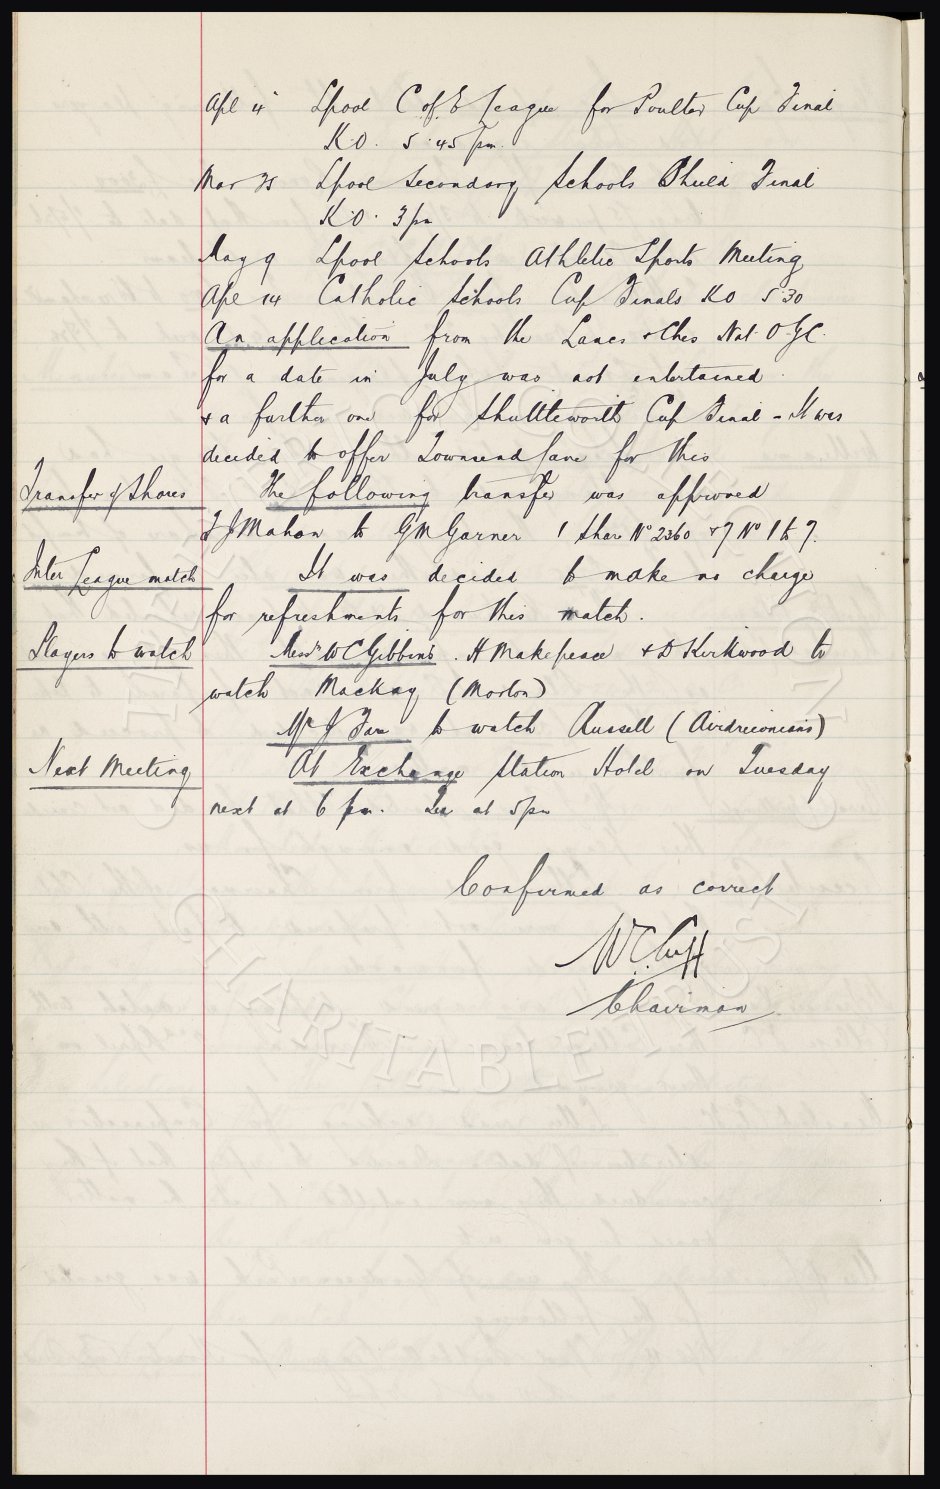 Apl 4 Lpool C of E League for Poulter Cup Final
K.O. 5.45 pm.
Mar 25 Lpool Secondary Schools Shield Final
K.O. 3 pm
May 9 Lpool Schools Athletic Sports Meeting
Apl 14 Catholic Schools Cup Finals KO 5.30
An application from the Lancs & Ches Nat. O
for a date in July was not entertained
& a further one for Shuttleworth Cup Final - It was
decided to offer Townsend Lane for this
Transfer of Shares The following transfer was approved
Mahon to G M Garner 1 Share No 2360 & 7 No 1 to 7.
Inter League match It was decided to make no charge
for refreshments for this match.
Players to watch Messrs W C Gibbins. H Makepeace & D Kirkwood to
watch Mackay (Morton)
Mr J Fare to watch Russell (Airdrieonians)
Next Meeting At Exchange Station Hotel on Tuesday
next at 6 pm. Tea at 5pm
Confirmed as correct
W.C. Cuff
Chairman
CHARITABLE TRUST